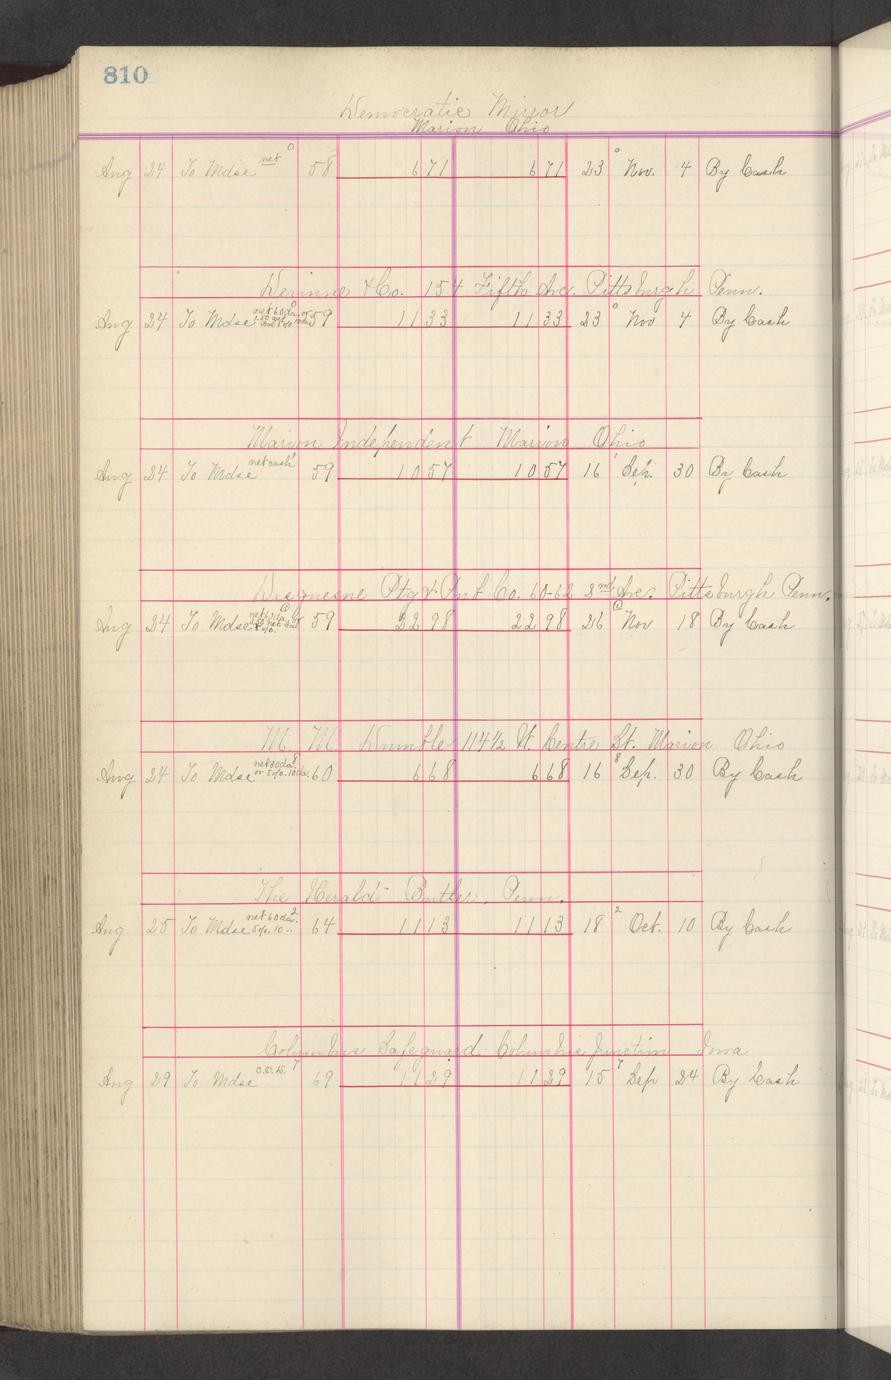 810
Democratic Mirror
Marion Ohio
Aug 24 To Mdse net 0 58 6 71 6 71 23 0 Nov. 4 By Cash
& Co. 154 Fifth Ave. Pittsburgh Penn.
Aug 24 To Mdse net 60 da. or 0 59 11 33 11 33 23 0 Nov 4 By Cash
Marion Independent Marion Ohio
Aug 24 To Mdse net cash 1 59 10 57 10 57 16 1 Sep. 30 By Cash
Duquesne Ptg & Pub Co. 60-62 2nd Ave. Pittsburgh Penn.
Aug 24 To Mdse 59 22 98 22 98 26 Nov 18 By Cash
M. M. Dumble 114½ W. Centre St. Marion Ohio
Aug 24 To Mdse net 30 da 8 or 5%. 10 da. 60 6 68 6 68 16 8 Sep. 30 By Cash
The Herald Butler, Penn.
Aug 25 To Mdse net 60 da. 2 5%. 10 " 64 11 13 11 13 18 2 Oct. 10 By Cash
Columbus Safeguard Columbus Junction Iowa
Aug 29 To Mdse C.O.D. 7 69 11 29 11 29 15 7 Sep 24 By Cash